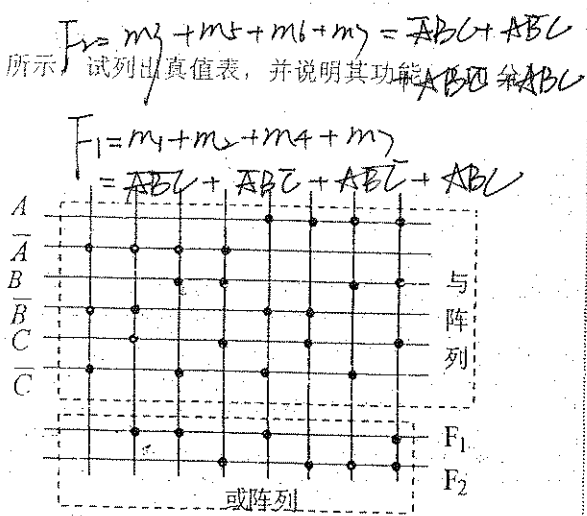 F₂= m3 +m5+m6+m7 = A̅BC+ AB̅C
所示，试列出真值表，并说明其功能 +ABC̅ + ABC
F₁=m1+m2+m4+m7
= A̅B̅C + A̅BC̅ + AB̅C̅ + ABC
A
A̅
B
B̅
C
C̅
与阵列
F₁
F₂
或阵列